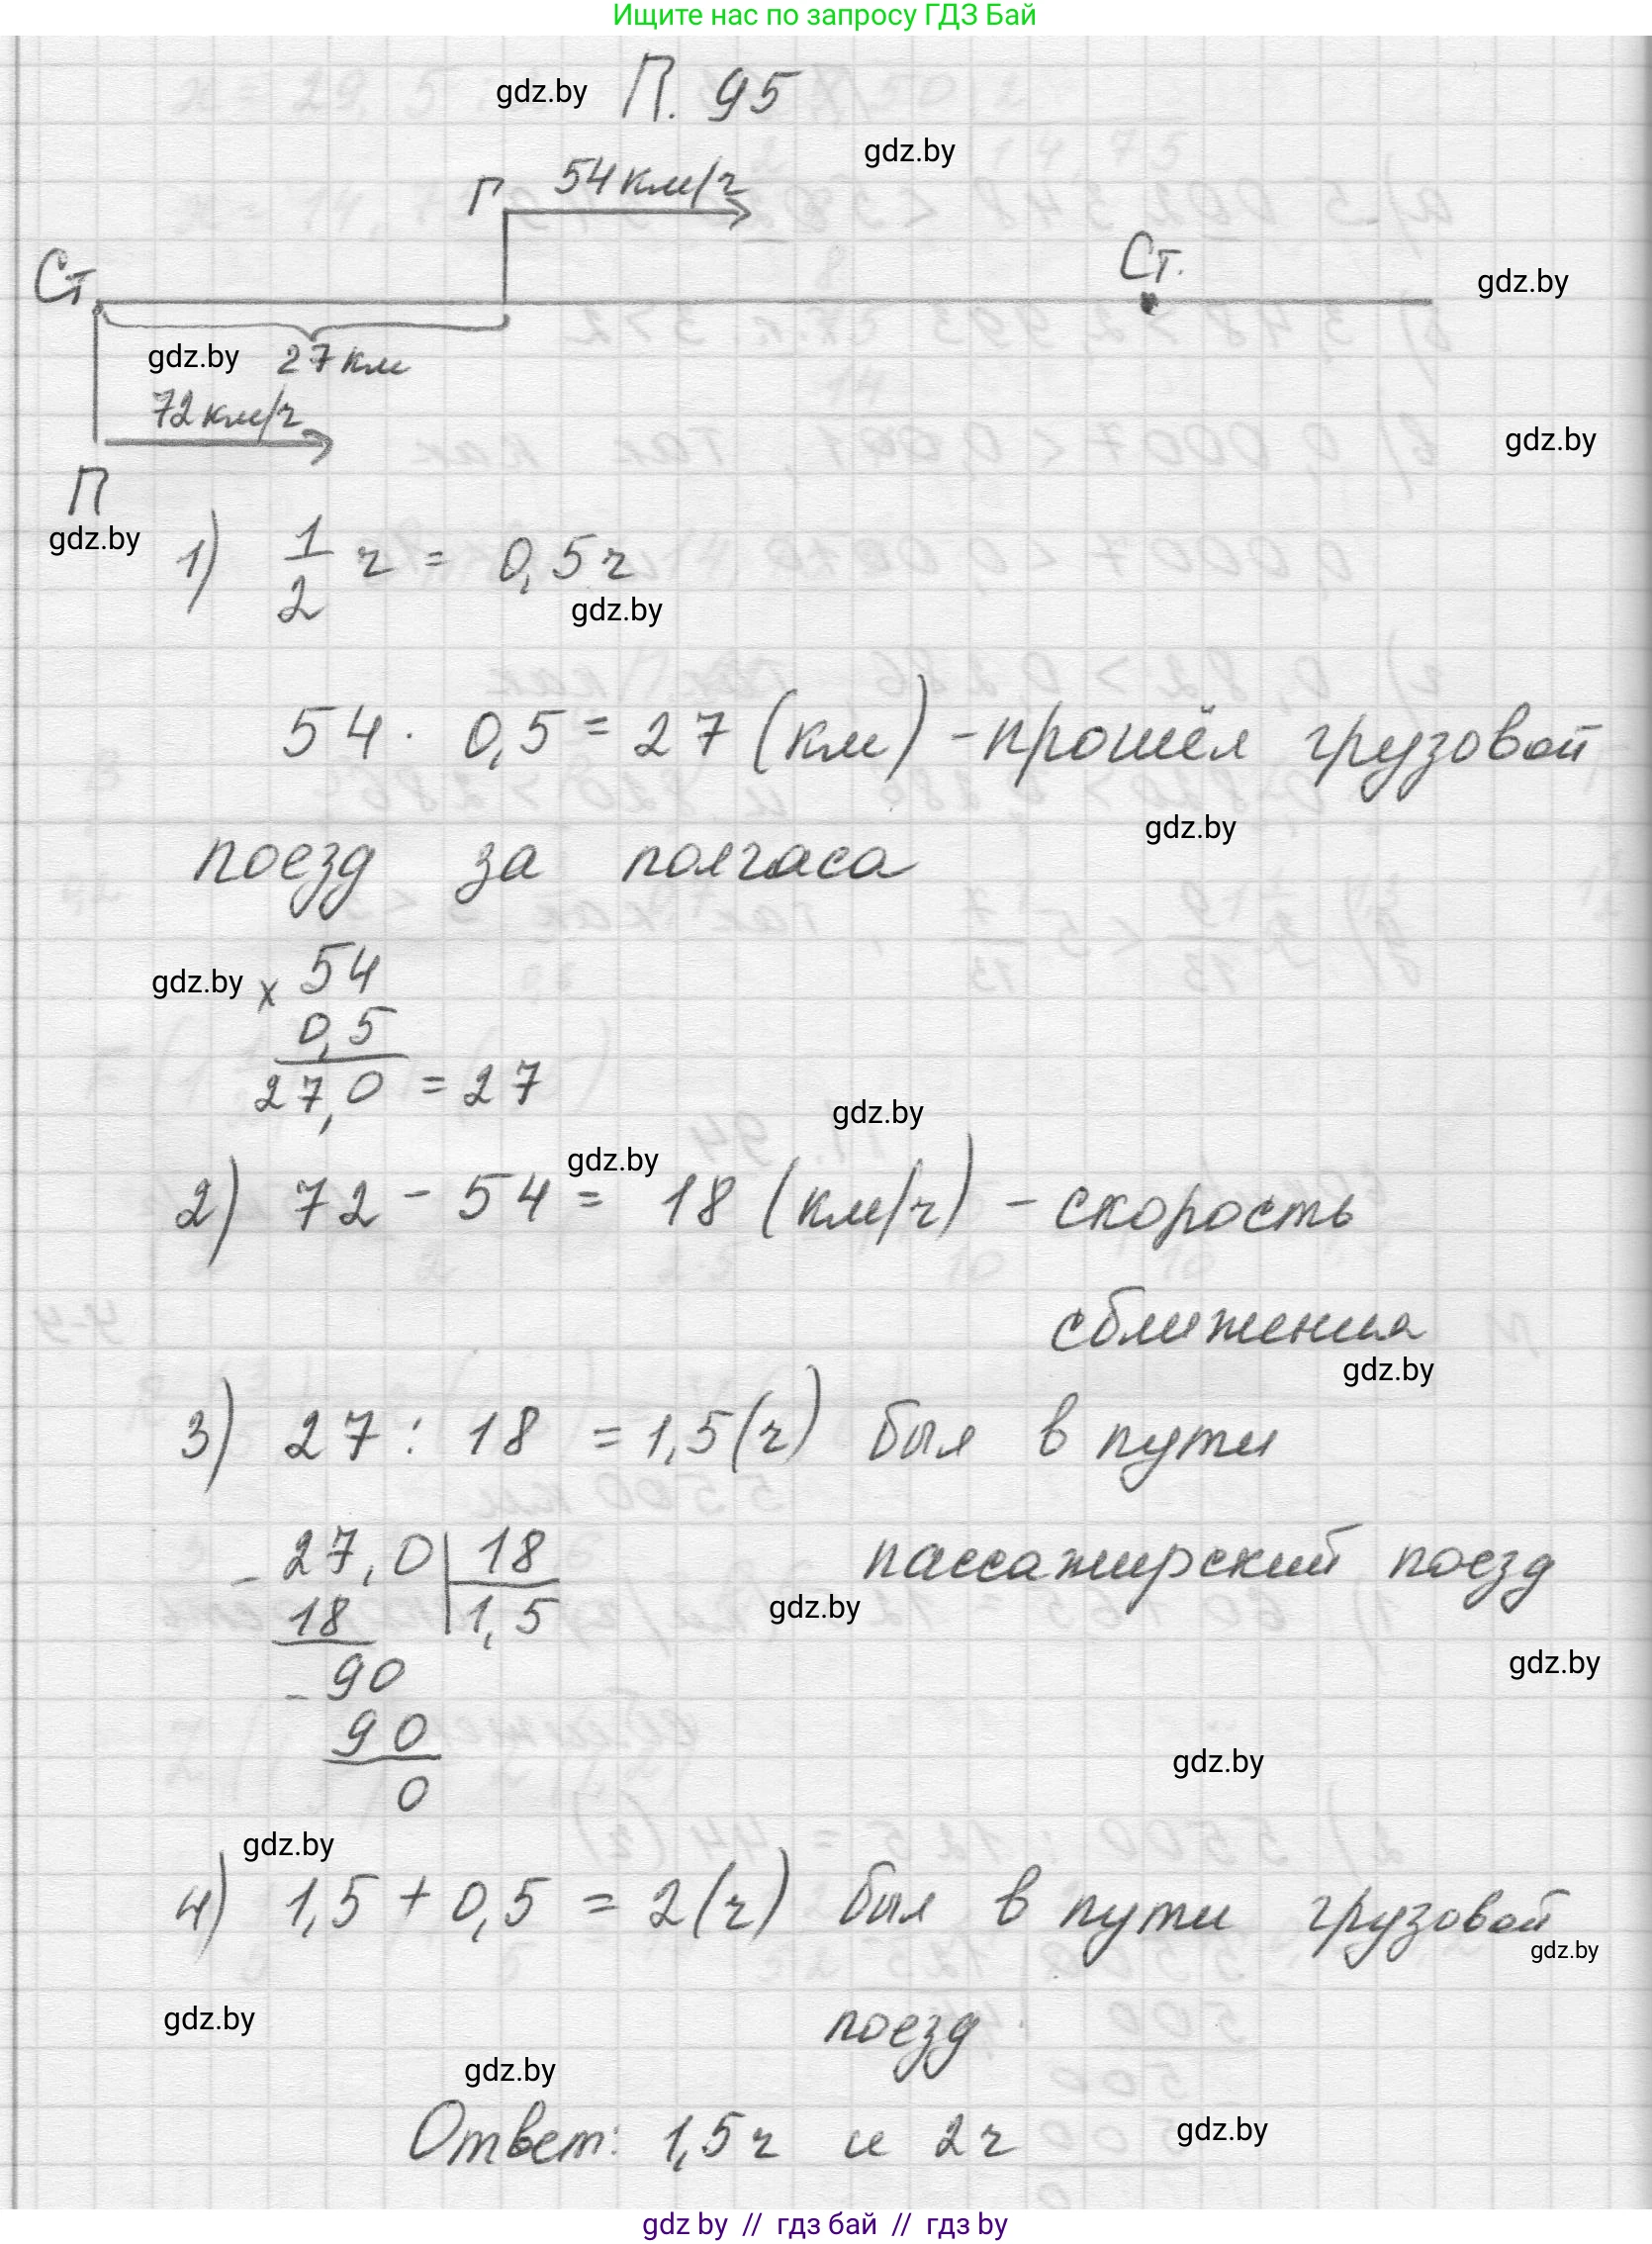 Ищите нас по запросу ГДЗ Бай
gdz.by П. 95
gdz.by
Г 54 км/ч
Ст. Ст. gdz.by
gdz.by 27 км
72 км/ч gdz.by
П
gdz.by
1) 1/2 ч = 0,5 ч
gdz.by
54 · 0,5 = 27 (км) - прошёл грузовой
gdz.by
поезд за полчаса
gdz.by × 54
0,5
27,0 = 27
gdz.by
gdz.by
2) 72 - 54 = 18 (км/ч) - скорость
сближения
gdz.by
3) 27 : 18 = 1,5 (ч) был в пути
- 27,0 18 пассажирский поезд
18 1,5 gdz.by
- 90 gdz.by
90
gdz.by
0
gdz.by
4) 1,5 + 0,5 = 2 (ч) был в пути грузовой
gdz.by
gdz.by поезд
gdz.by
Ответ: 1,5 ч и 2 ч gdz.by
gdz by // гдз бай // гдз by